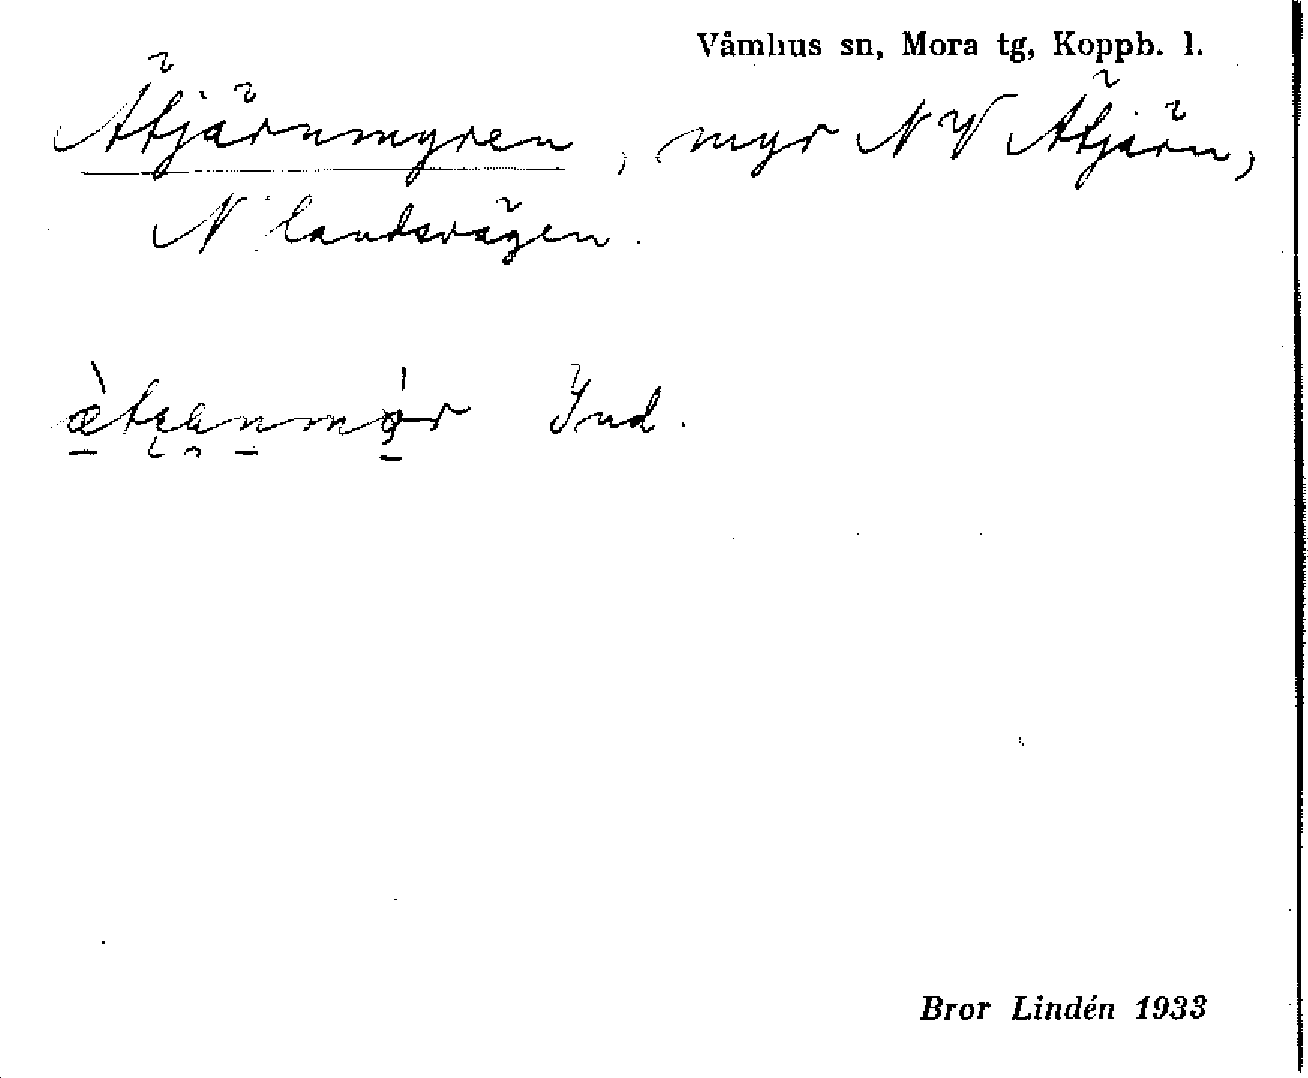 Våmhus sn, Mora tg, Koppb. l.
Ätjärnmyren, myr NV Ätjärn,
N landsvägen.
Ind.
Bror Lindén 1933